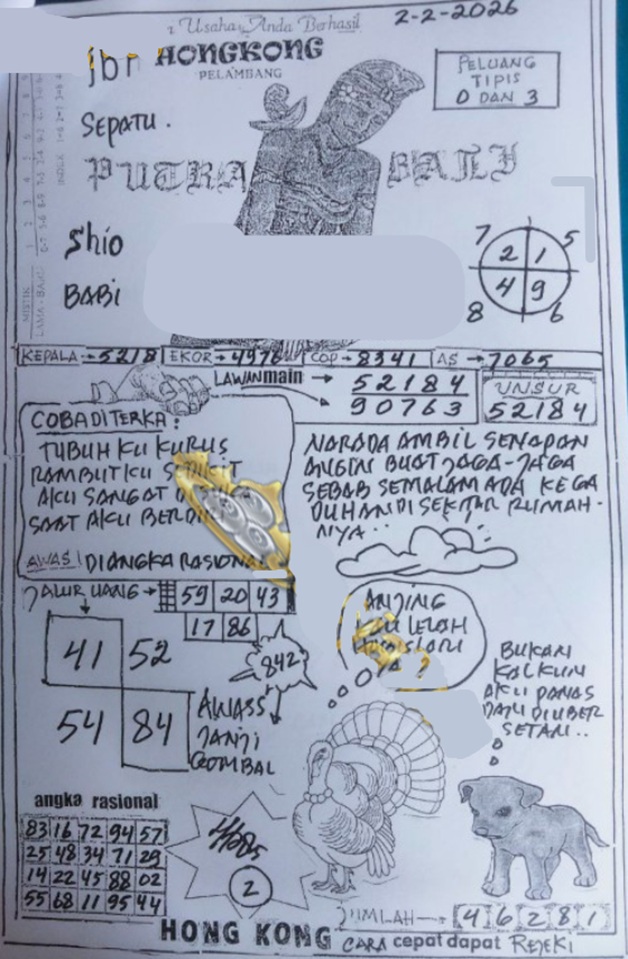 Usaha Anda Berhasil
2-2-2026
jbr HONGKONG
PELAMBANG
PELUANG
TIPIS
0 DAN 3
SEPATU.
PUTRA BALI
Shio
BABI
7 5
2 1
4 9
8 6
KEPALA → 5218 EKOR → 4976 COP → 8341 AS → 7065
LAWAN main → 52184
90763
UNSUR
52184
COBA DITERKA:
TUBUH KU KURUS
RAMBUTKU
AKU SANGAT
SAAT AKU
AWAS! DIANGKA RASIONAL
NARADA AMBIL SENAPAN
ANGIN BUAT JAGA-JAGA
SEBAB SEMALAM ADA KEGA
DUHAN DI SEKITAR RUMAH-
NYA..
JALUR UANG → 59 20 43
17 86
41 52
54 84
842
AWASS
JANJI
GOMBAL
ANJING
LELAH
?
BUKAN
KALKUN
AKU PANAS
DIUBER
SETAN..
angka rasional
83 16 72 94 57
25 48 34 71 29
14 22 45 88 02
55 68 11 95 44
2
JUMLAH → 4 6 2 8 1
HONG KONG CARA cepat dapat REJEKI